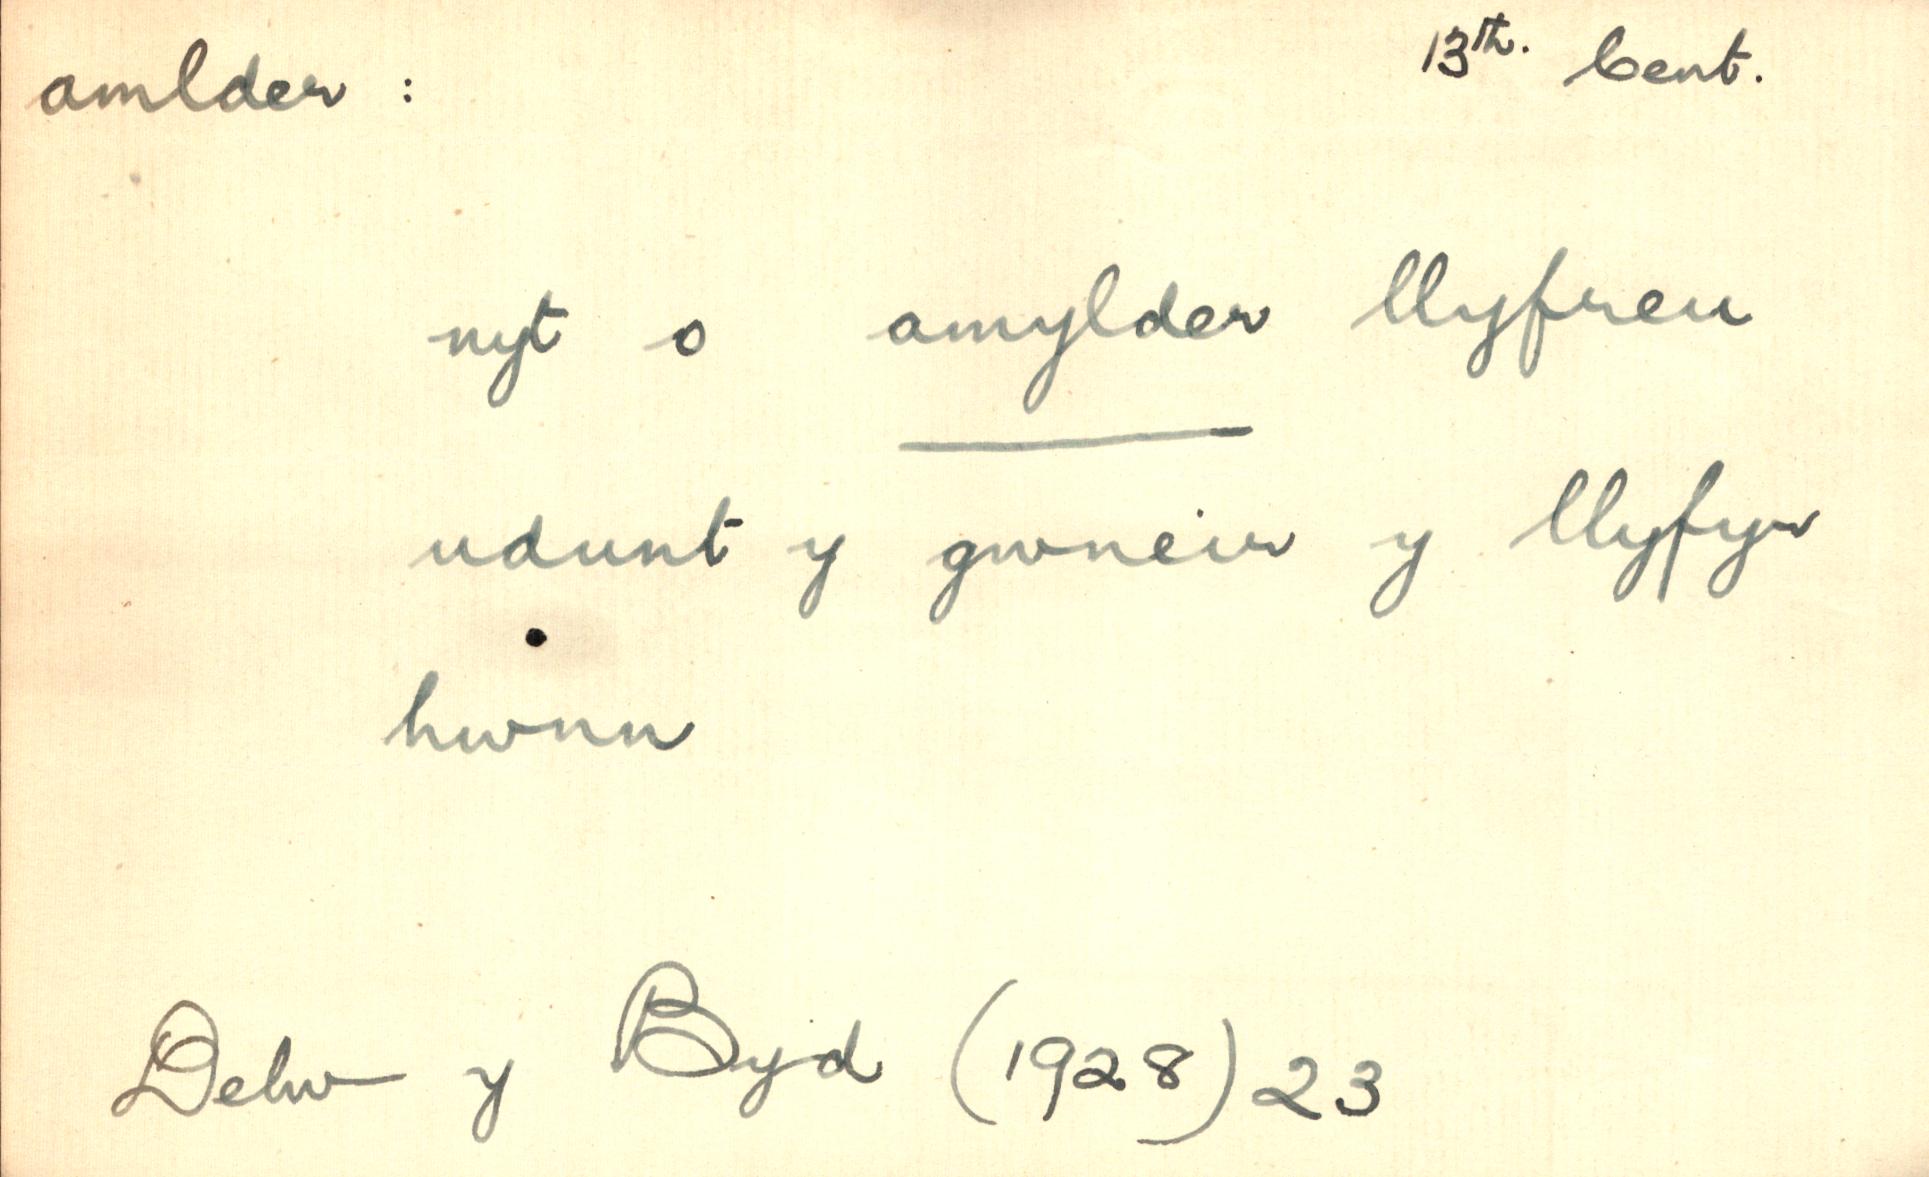 amlder : 13th. Cent.
nyt o amylder llyfreu
udunt y gwneir y llyfyr
hwnn
Delw y Byd (1928) 23